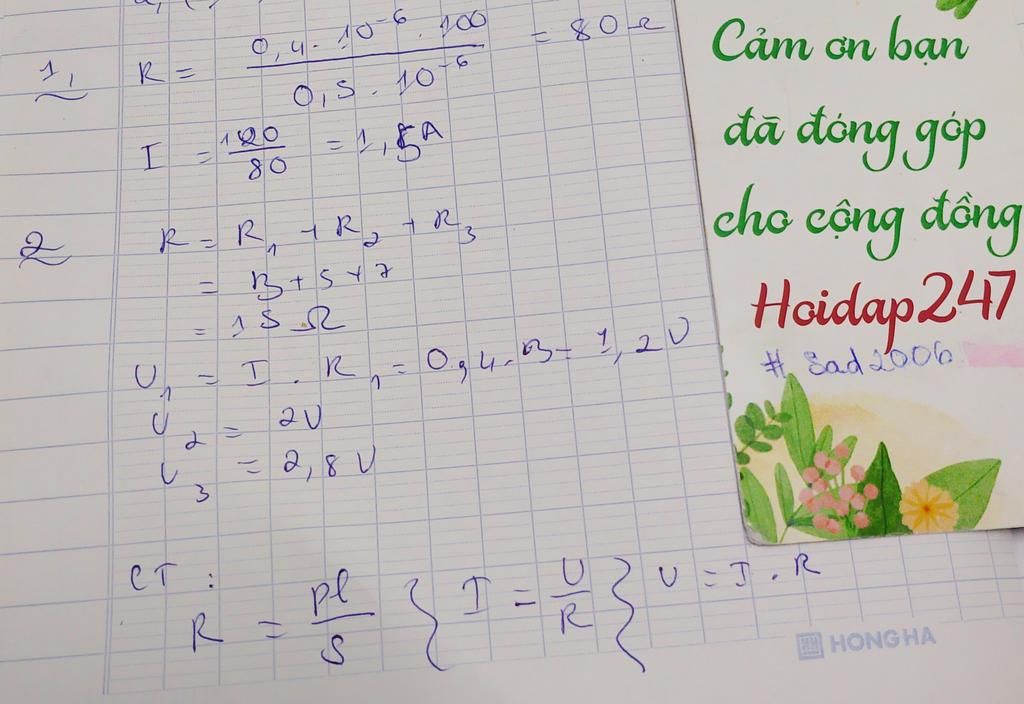 1, R = 0,4 . 10⁻⁶ . 100 / 0,5 . 10⁻⁶ = 80 Ω
I = 120 / 80 = 1,5 A
2 R = R₁ + R₂ + R₃
= 3 + 5 + 7
= 15 Ω
U₁ = I . R₁ = 0,4 . 3 = 1,2 U
U₂ = 2U
U₃ = 2,8 U
CT :
R = ρl / S } I = U / R } U = I . R
Cảm ơn bạn
đã đóng góp
cho cộng đồng
Hoidap247
# Sad2006
HONG HA